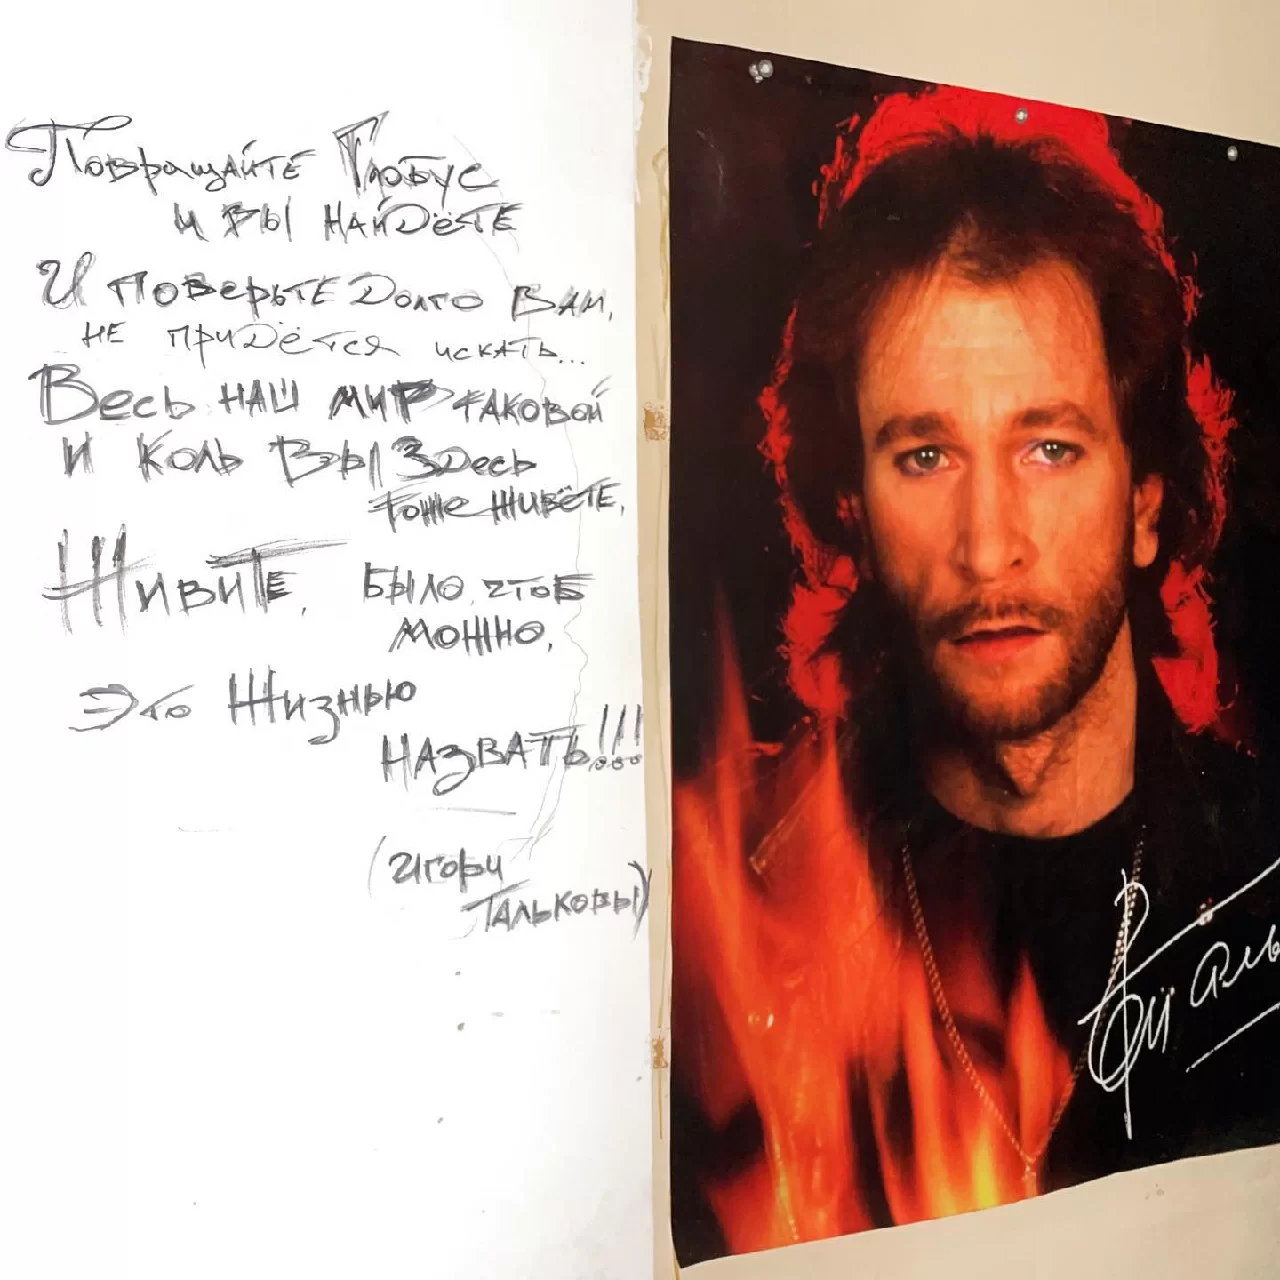 Повращайте Глобус
и вы найдёте
И поверьте долго Вам,
не придётся искать...
Весь наш мир таковой
и коль Вы здесь
тоже живёте,
Живите, было чтоб
можно,
Это Жизнью
назвать!!!
(Игори
Тальковы)